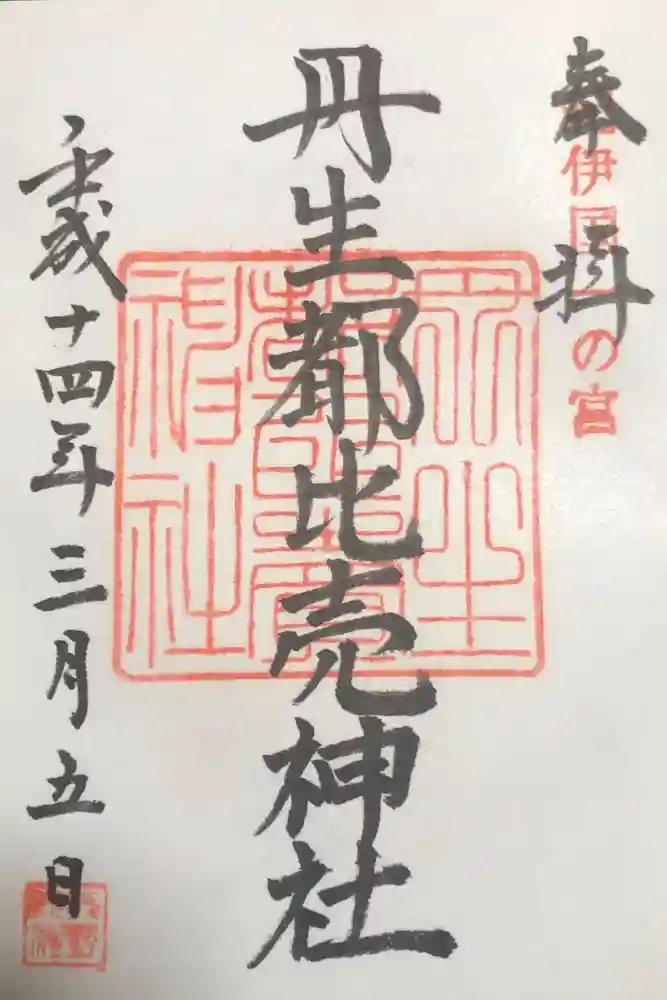 奉拝
紀伊國一の宮
丹生都比売神社
丹生都比賣神社
平成十四年三月五日